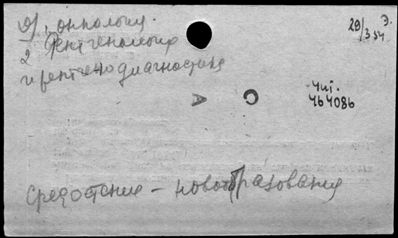 онкология.
2 Рентгенология
и рентгенодиагностика
Э.
29/354
Чит.
464086
А О
Средостения - новообразования